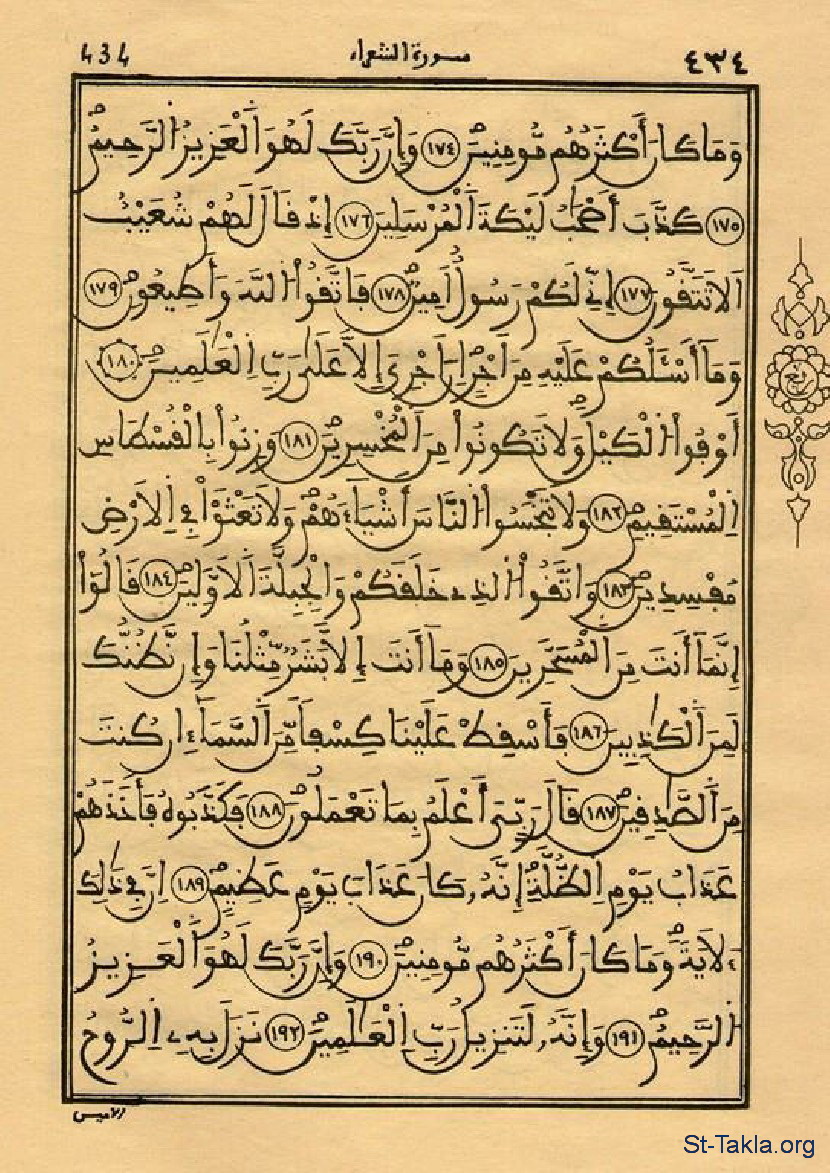 434 سورة الشعراء ٤٣٤
وَمَا كَانَ أَكْثَرُهُم مُّومِنِينَ ١٧٤ وَإِنَّ رَبَّكَ لَهُوَ اَلْعَزِيزُ اُلرَّحِيمُ
١٧٥ كَذَّبَ أَصْحَٰبُ لَيْكَةَ اَلْمُرْسَلِينَ ١٧٦ إِذْ قَالَ لَهُمْ شُعَيْبٌ
اَلَا تَتَّقُونَ ١٧٧ إِنِّے لَكُمْ رَسُولٌ اَمِينٌ ١٧٨ فَاتَّقُواْ اُللَّهَ وَأَطِيعُونِ ١٧٩
وَمَآ أَسْـَٔلُكُمْ عَلَيْهِ مِنَ اَجْرٍ اِنَ اَجْرِىَ إِلَّا عَلَىٰ رَبِّ اِلْعَٰلَمِينَ ١٨٠
أَوْفُواْ اُلْكَيْلَ وَلَا تَكُونُواْ مِنَ اَلْمُخْسِرِينَ ١٨١ وَزِنُواْ بِالْقُسْطَاسِ
اِلْمُسْتَقِيمِ ١٨٢ وَلَا تَبْخَسُواْ اُلنَّاسَ أَشْيَآءَهُمْ وَلَا تَعْثَوْاْ فِے اِلَارْضِ
مُفْسِدِينَ ١٨٣ وَاتَّقُواْ اُلذِے خَلَقَكُمْ وَالْجِبِلَّةَ اَلَاوَّلِينَ ١٨٤ قَالُوٓاْ
إِنَّمَآ أَنتَ مِنَ اَلْمُسَحَّرِينَ ١٨٥ وَمَآ أَنتَ إِلَّا بَشَرٌ مِّثْلُنَا وَإِن نَّظُنُّكَ
لَمِنَ اَلْكَٰذِبِينَ ١٨٦ فَأَسْقِطْ عَلَيْنَا كِسْفاً مِّنَ اَلسَّمَآءِ اِن كُنتَ
مِنَ اَلصَّٰدِقِينَ ١٨٧ قَالَ رَبِّىَ أَعْلَمُ بِمَا تَعْمَلُونَ ١٨٨ فَكَذَّبُوهُ فَأَخَذَهُمْ
عَذَابُ يَوْمِ اِلظُّلَّةِ إِنَّهُۥ كَانَ عَذَابَ يَوْمٍ عَظِيمٍ ١٨٩ اِنَّ فِے ذَٰلِكَ
ءَلَايَةً وَمَا كَانَ أَكْثَرُهُم مُّومِنِينَ ١٩٠ وَإِنَّ رَبَّكَ لَهُوَ اَلْعَزِيزُ
اُلرَّحِيمُ ١٩١ وَإِنَّهُۥ لَتَنزِيلُ رَبِّ اِلْعَٰلَمِينَ ١٩٢ نَزَلَ بِهِ اِلرُّوحُ
اُلَامِينُ
St-Takla.org